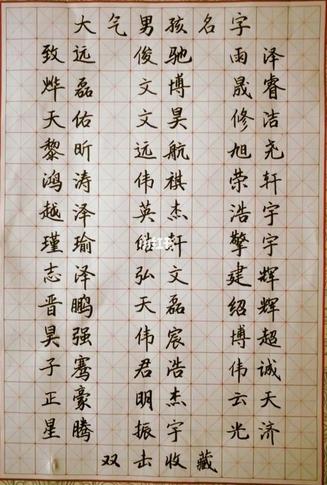 大气男孩名字
致远 俊驰 雨泽
烨磊 文博 晟睿
天佑 文昊 修洁
黎昕 远航 旭尧
鸿涛 伟祺 荣轩
越泽 英杰 浩宇
瑾瑜 轩 擎宇
志泽 弘文 建辉
晋鹏 天磊 绍辉
昊强 伟宸 博超
子骞 君浩 伟诚
正豪 明杰 云天
星腾 振宇 光济
双击收藏